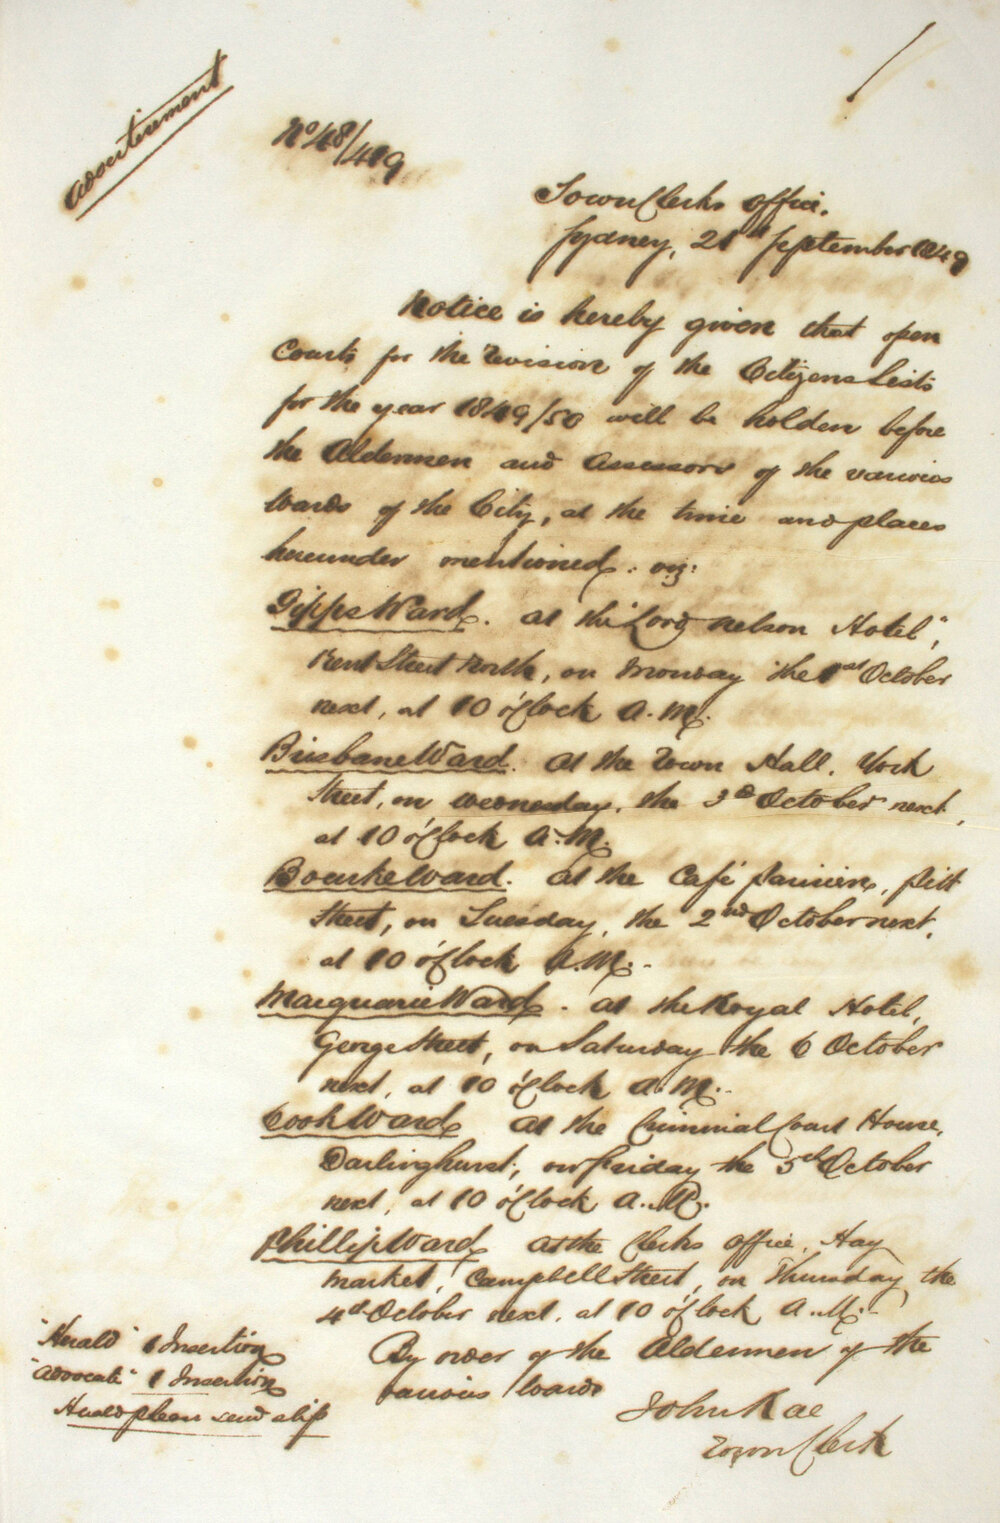 Advertisement
No 48/419
Town Clerks Office.
Sydney, 21st September 1849
Notice is hereby given that open
Courts for the revision of the Citizens Lists
for the year 1849/50 will be holden before
the Aldermen and Assessors of the various
Wards of the City, at the time and places
hereunder mentioned. viz:
Gipps Ward. At the "Lord Nelson Hotel",
Kent Street North, on Monday the 1st October
next, at 10 o'Clock A.M.
Brisbane Ward. At the Town Hall, York
Street, on Wednesday, the 3rd October next,
at 10 o'Clock A.M.
Bourke Ward. At the Café Parisien, Pitt
Street, on Tuesday, the 2nd October next,
at 10 o'Clock A.M.
Macquarie Ward. At the Royal Hotel,
George Street, on Saturday the 6 October
next, at 10 o'Clock A.M.
Cook Ward At the Criminal Court House,
Darlinghurst, on Friday the 5th October
next, at 10 o'Clock A.M.
Phillip Ward At the Clerks Office, Hay
Market, Campbell Street, on Thursday the
4th October next, at 10 o'Clock A.M.
By order of the Aldermen of the
various Wards
John Rae
Town Clerk
"Herald" 1 Insertion
"Advocate" 1 Insertion
Herald please send slip